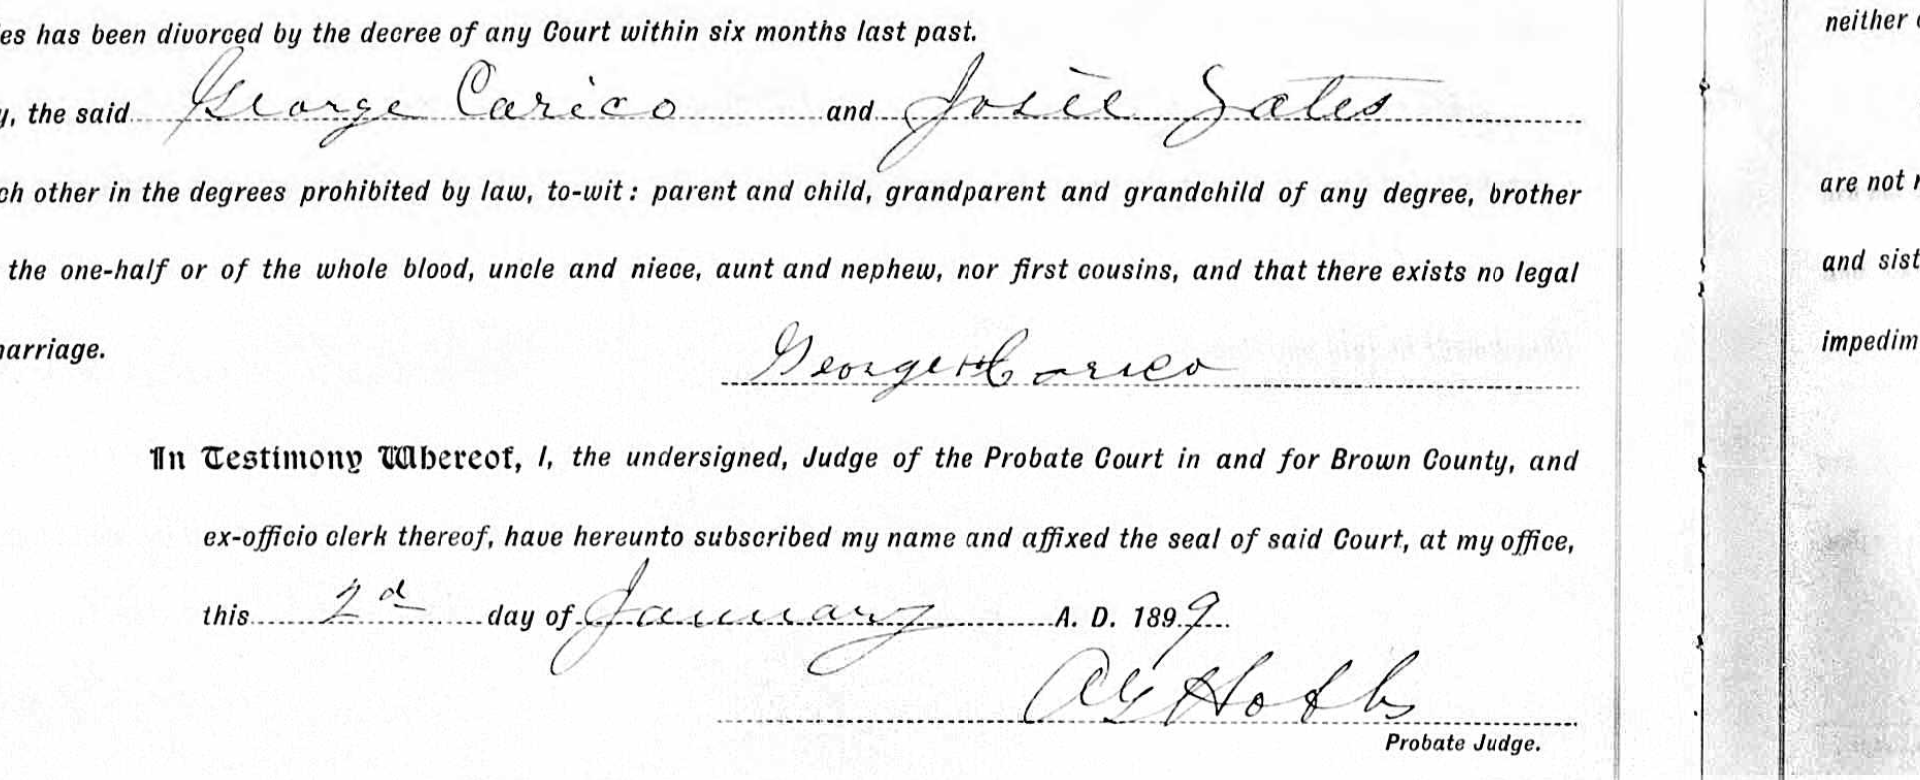 es has been divorced by the decree of any Court within six months last past.
y, the said George Carico and Josie Yates
ch other in the degrees prohibited by law, to-wit: parent and child, grandparent and grandchild of any degree, brother
the one-half or of the whole blood, uncle and niece, aunt and nephew, nor first cousins, and that there exists no legal
marriage.
George H Carico
In Testimony Whereof, I, the undersigned, Judge of the Probate Court in and for Brown County, and
ex-officio clerk thereof, have hereunto subscribed my name and affixed the seal of said Court, at my office,
this 2d day of January A. D. 1899
Hobbs
Probate Judge.
neither
are not r
and sist
impedim